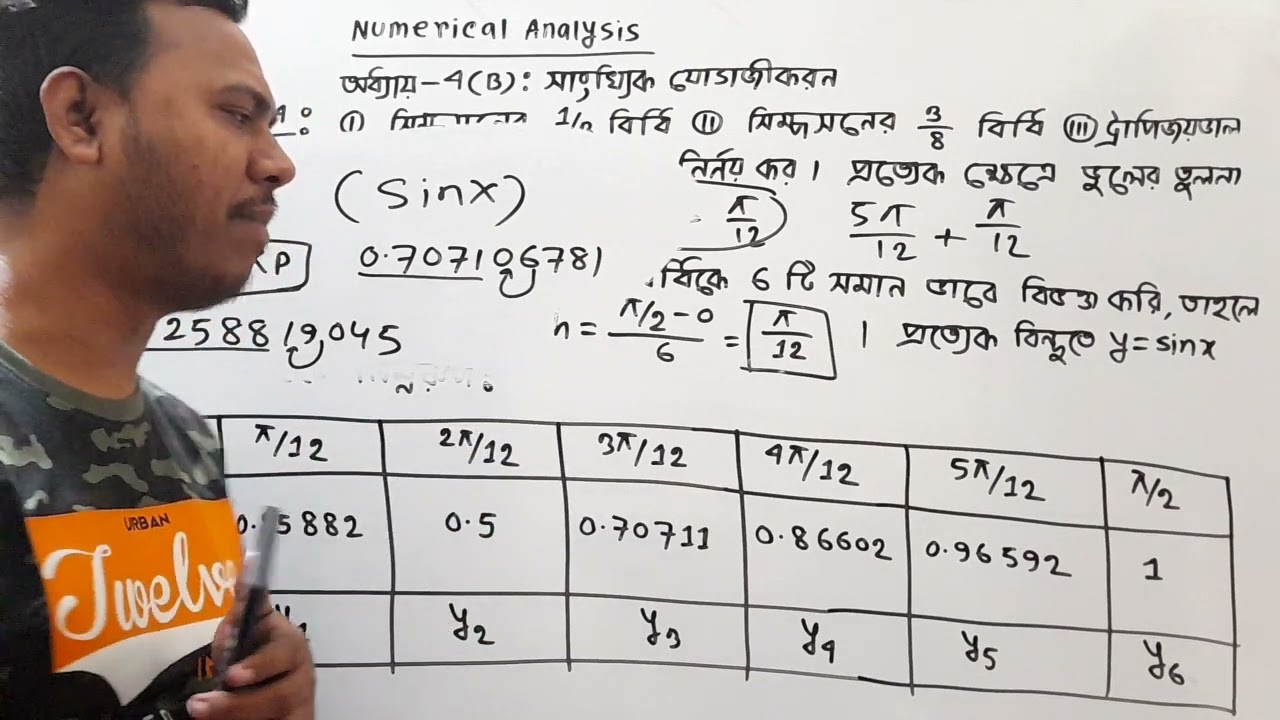 Numerical Analysis
অধ্যায়-4(B): সাংখ্যিক যোজাজীকরন
: (i) 1/2 বিধি (ii) সিম্পসনের 3/8 বিধি (iii) ট্রাপিজয়ডাল
নির্নয় কর। প্রত্যেক ক্ষেত্রে ভুলের তুলনা
(sinx) π/12) 5π/12 + π/12
P 0.707106781
6 টি সমান ভাবে বিভক্ত করি, তাহলে
2588 19045 h = π/2-0/6 = π/12 । প্রত্যেক বিন্দুতে y=sinx
π/12 2π/12 3π/12 4π/12 5π/12 π/2
5882 0.5 0.70711 0.86602 0.96592 1
y2 y3 y4 y5 y6
URBAN
Twelve